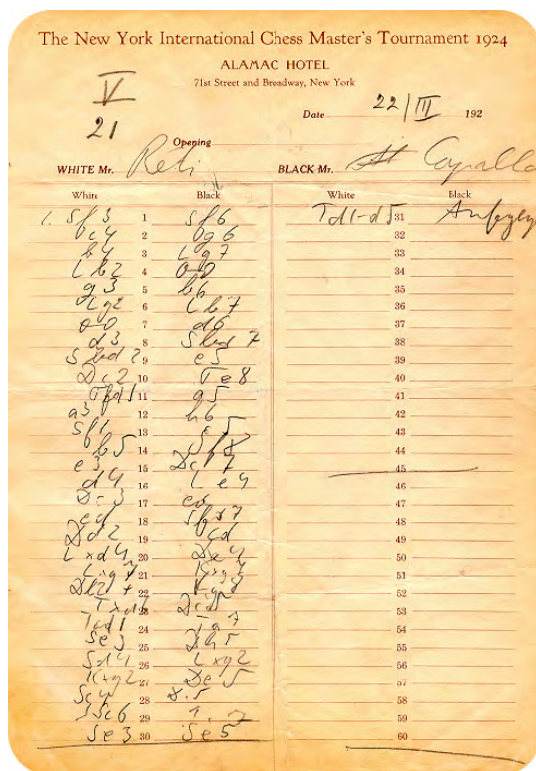 The New York International Chess Master's Tournament 1924
ALAMAC HOTEL
71st Street and Broadway, New York
V
21
Date 22/III 192
Opening
WHITE Mr. Reti BLACK Mr.
White Black White Black
1. Sf3 1 Sf6 Td1-d5 31
c4 2 g6 32
b4 3 Lg7 33
Lb2 4 0-0 34
g3 5 b6 35
Lg2 6 Lb7 36
0-0 7 d6 37
d3 8 Sbd7 38
Sbd2 9 e5 39
Dc2 10 Te8 40
Tfd1 11 a5 41
a3 12 h6 42
Sf1 13 c5 43
b5 14 Sf8 44
e3 15 Dc7 45
d4 16 Le4 46
Dc3 17 ed 47
ed 18 Sfd7 48
Dd2 19 cd 49
Lxd4 20 Dc4 50
Lxg7 21 Kxg7 51
Db2+ 22 Kg8 52
Txd6 23 Dc5 53
Tad1 24 Ta7 54
Se3 25 Dh5 55
Sd4 26 Lxg2 56
Kxg2 27 De5 57
Sc4 28 58
Sc6 29 59
Se3 30 Se5 60